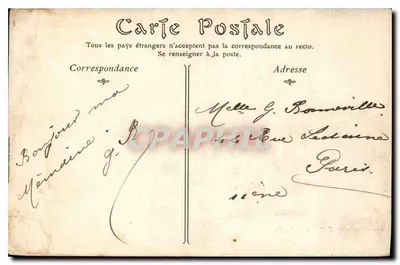 Carte Postale
Tous les pays étrangers n'acceptent pas la correspondance au recto.
Se renseigner à la poste.
Correspondance
Adresse
Bonjour ma
Mémaine
g. B
Melle G. Bonneville
Rue
Paris
CPARAMA.COM